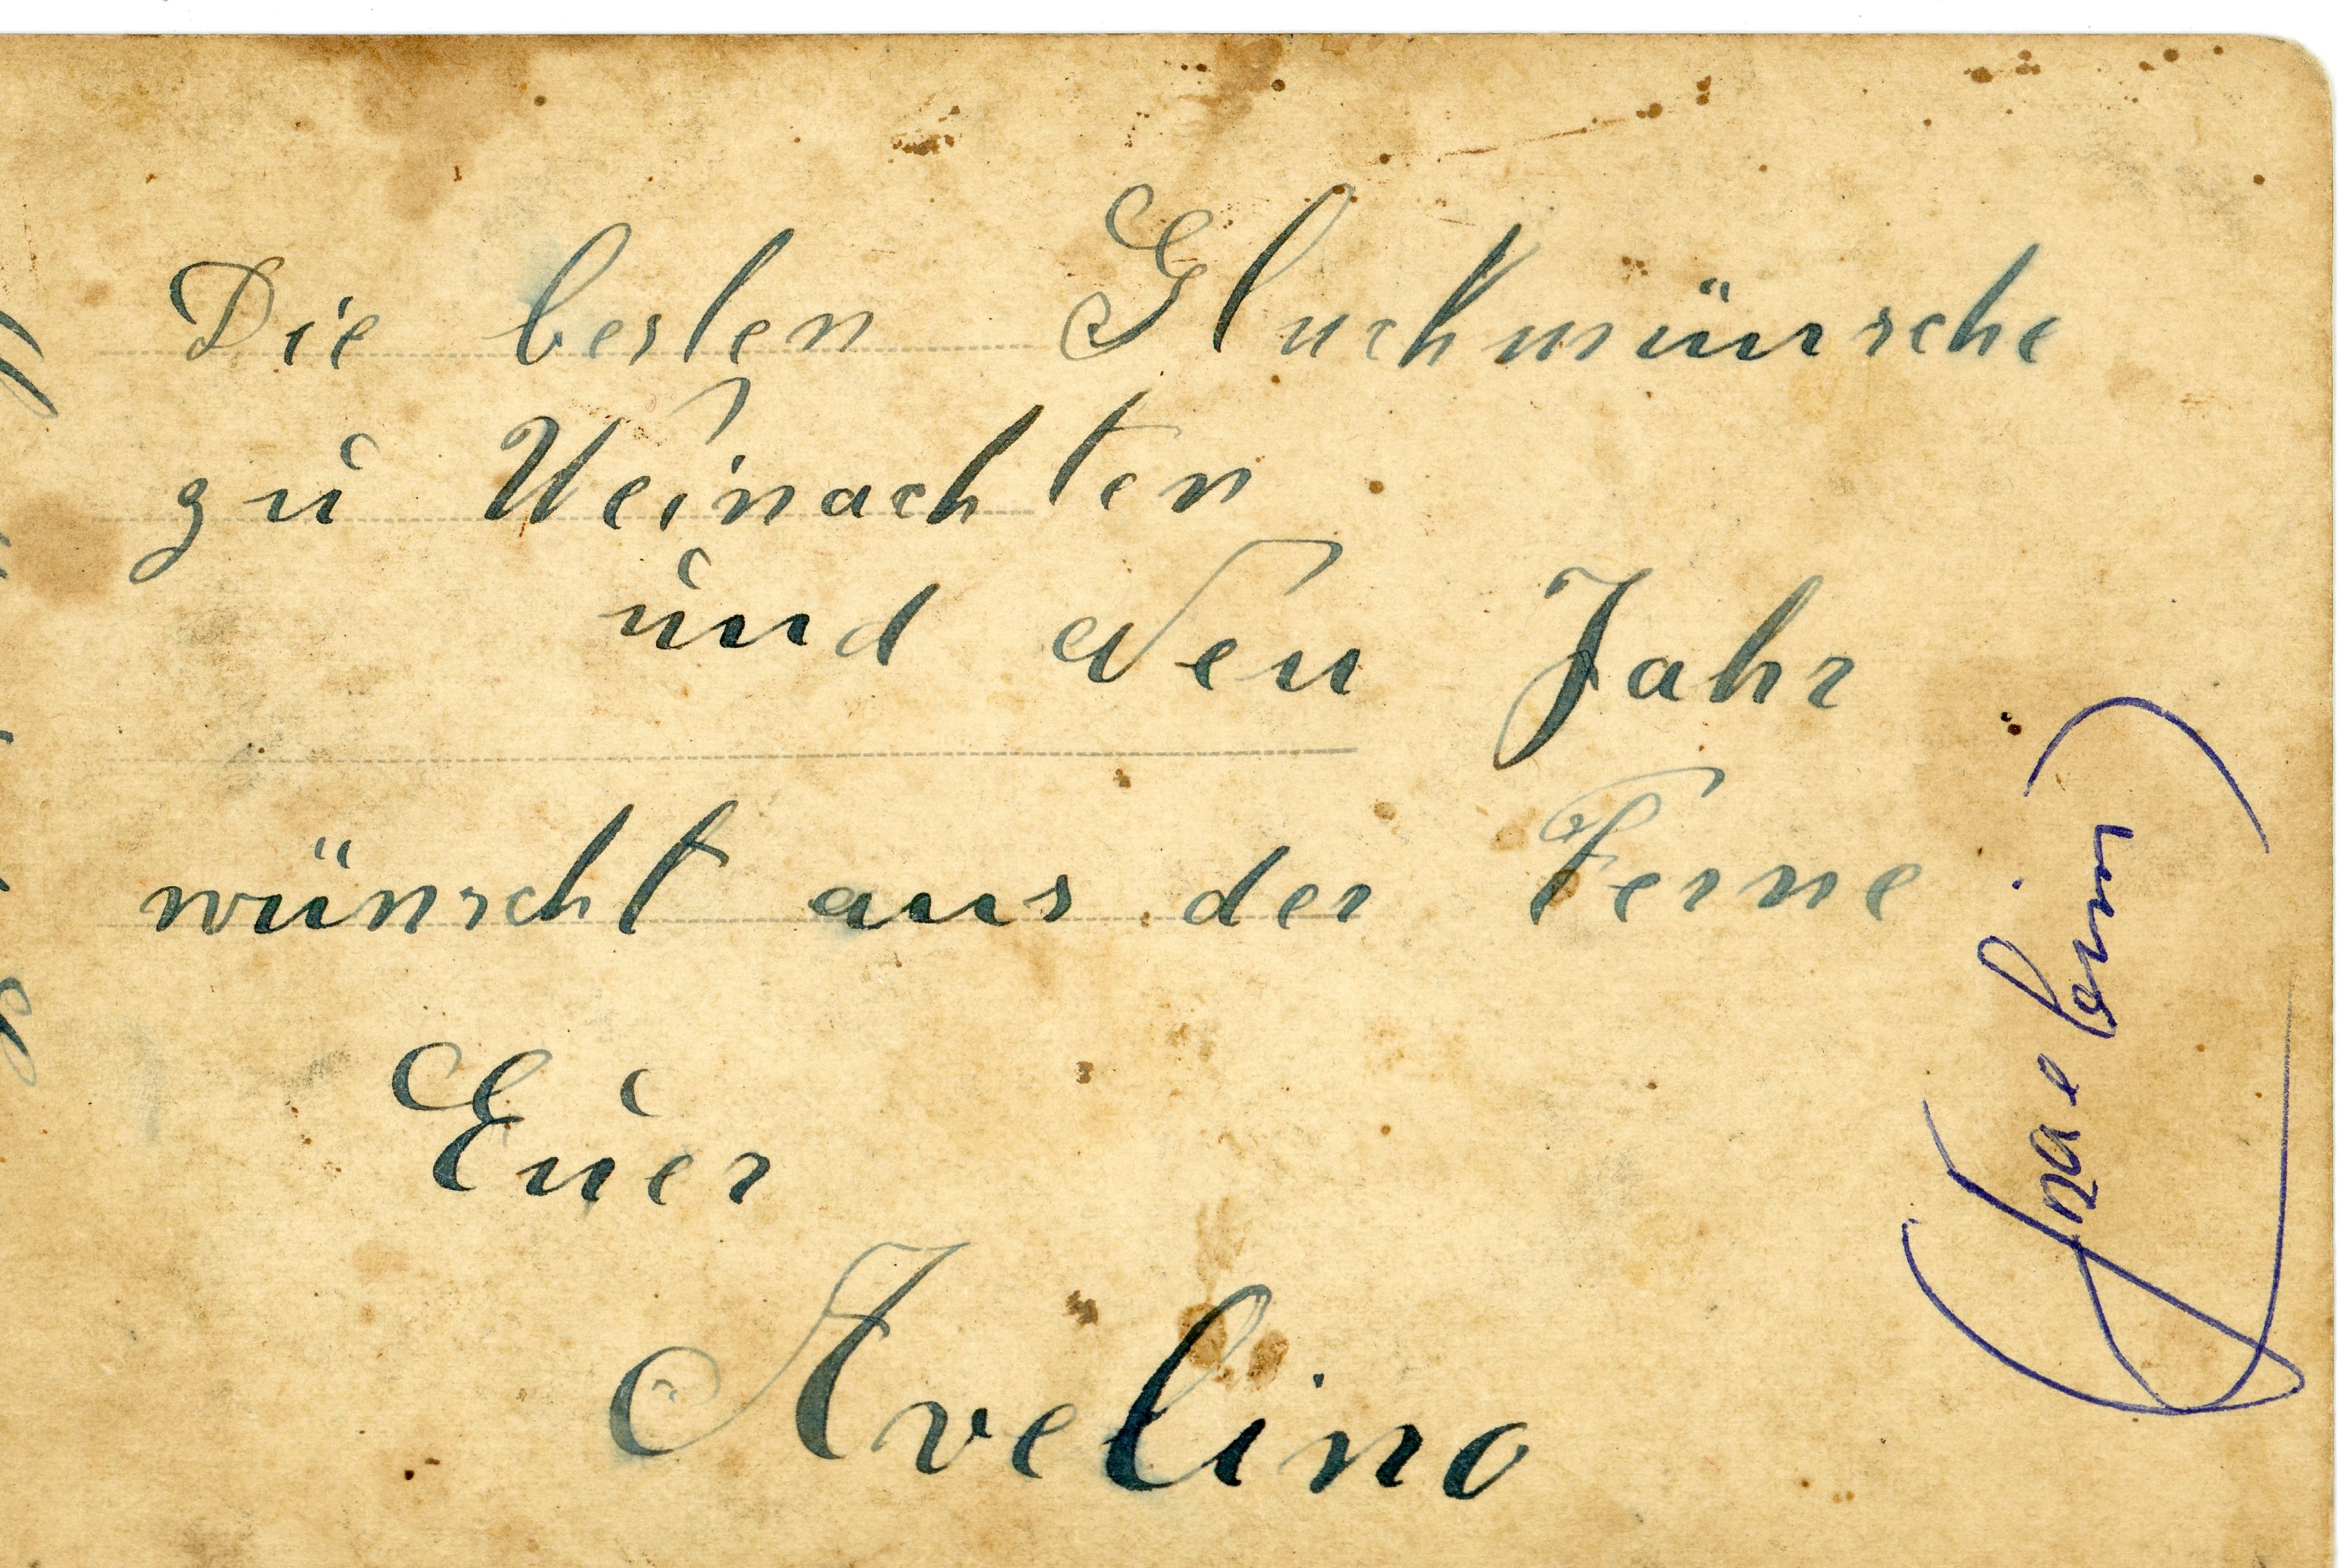 Die besten Gluckwünsche
zu Weinachten
und Neu Jahr
wünscht aus der Ferne
Euer
Avelino